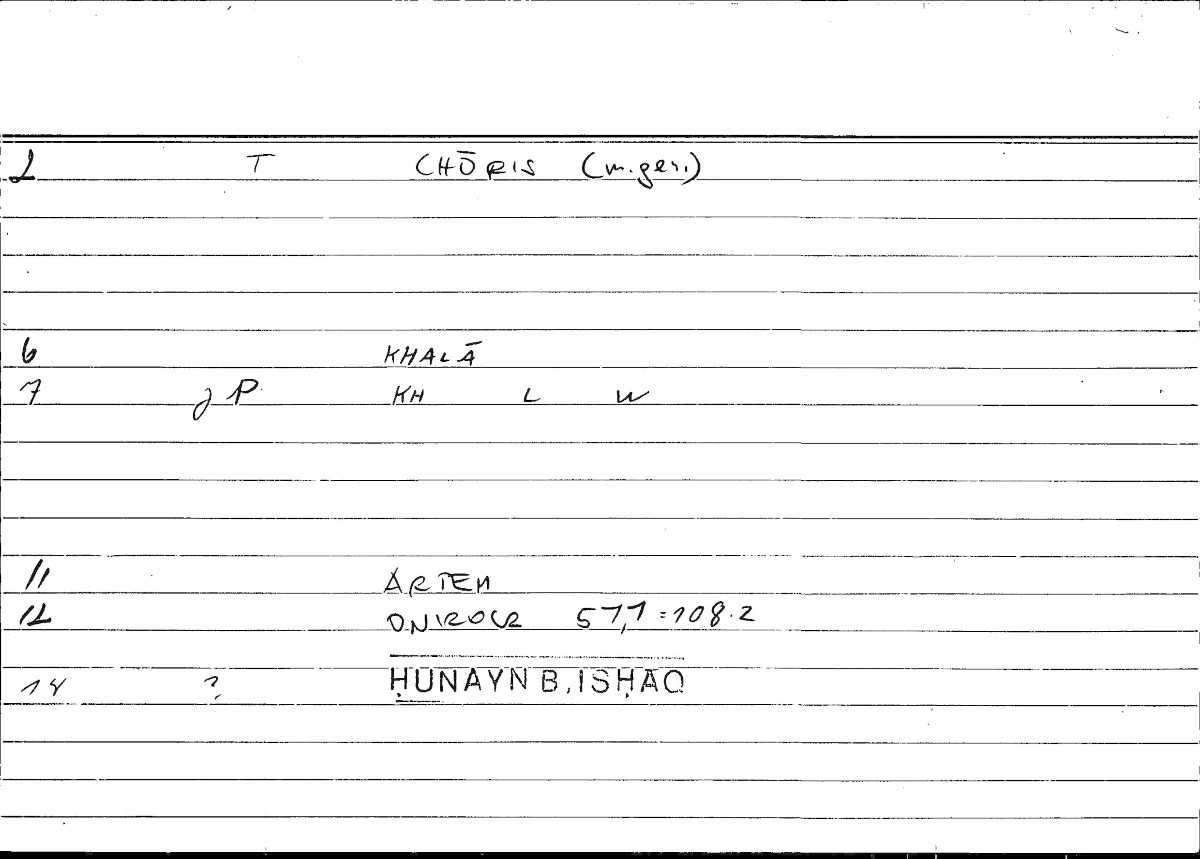 2 T CHŌRIS (m. gen.)
6 KHALĀ
7 J P KH L W
11 ARTEM
12 ONIROCR 57,1 = 108.2
14 ? ḤUNAYN B. ISḤAQ